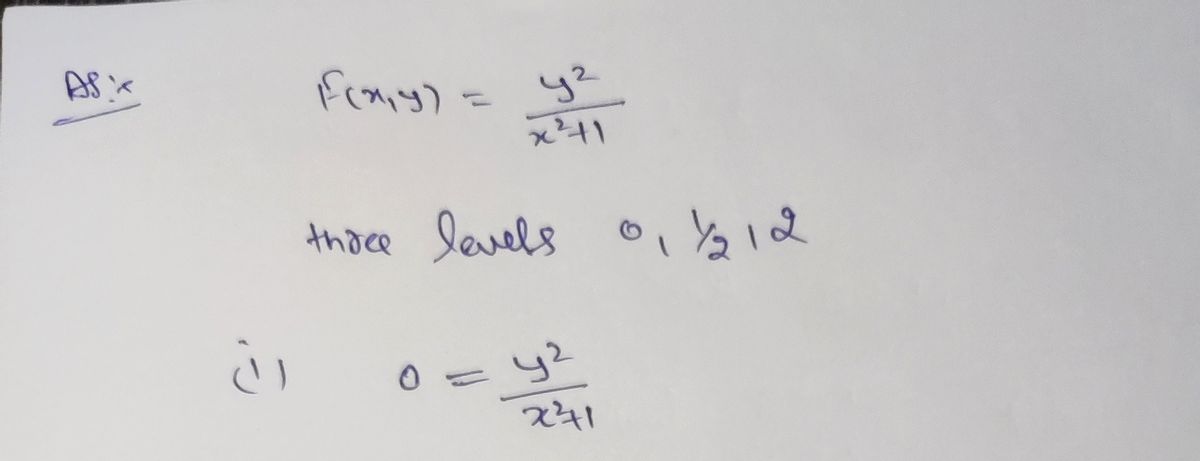 F(x,y) = y²/(x²+1)
three levels 0, ½, 2
(i) 0 = y²/(x²+1)